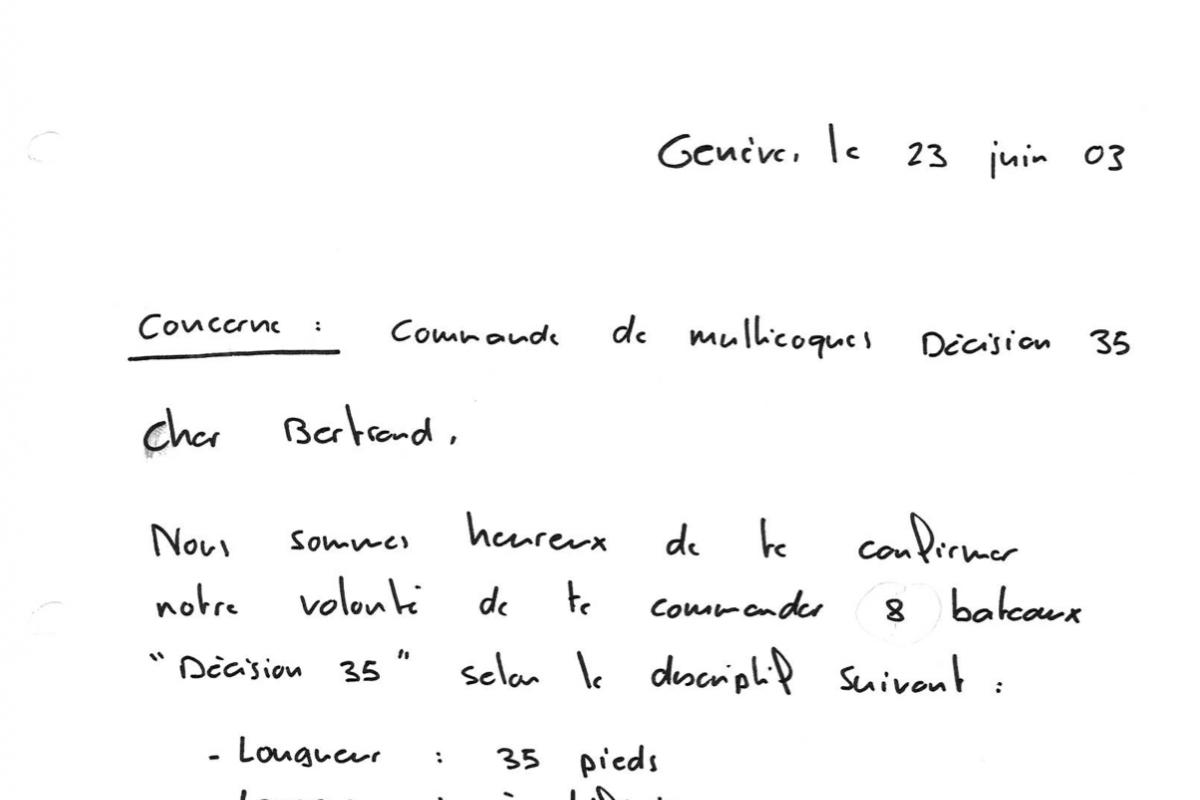 Genève, le 23 juin 03
Concerne : Commande de multicoques Décision 35
Cher Bertrand,
Nous sommes heureux de te confirmer
notre volonté de te commander 8 bateaux
"Décision 35" selon le descriptif suivant :
- Longueur : 35 pieds